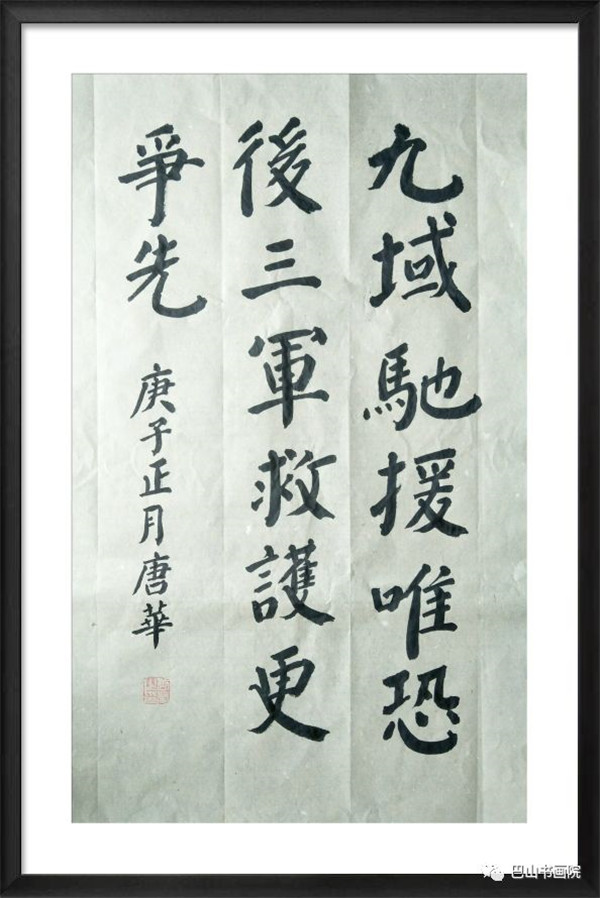 九域馳援唯恐
後三軍救護更
爭先
庚子正月唐華
巴山书画院